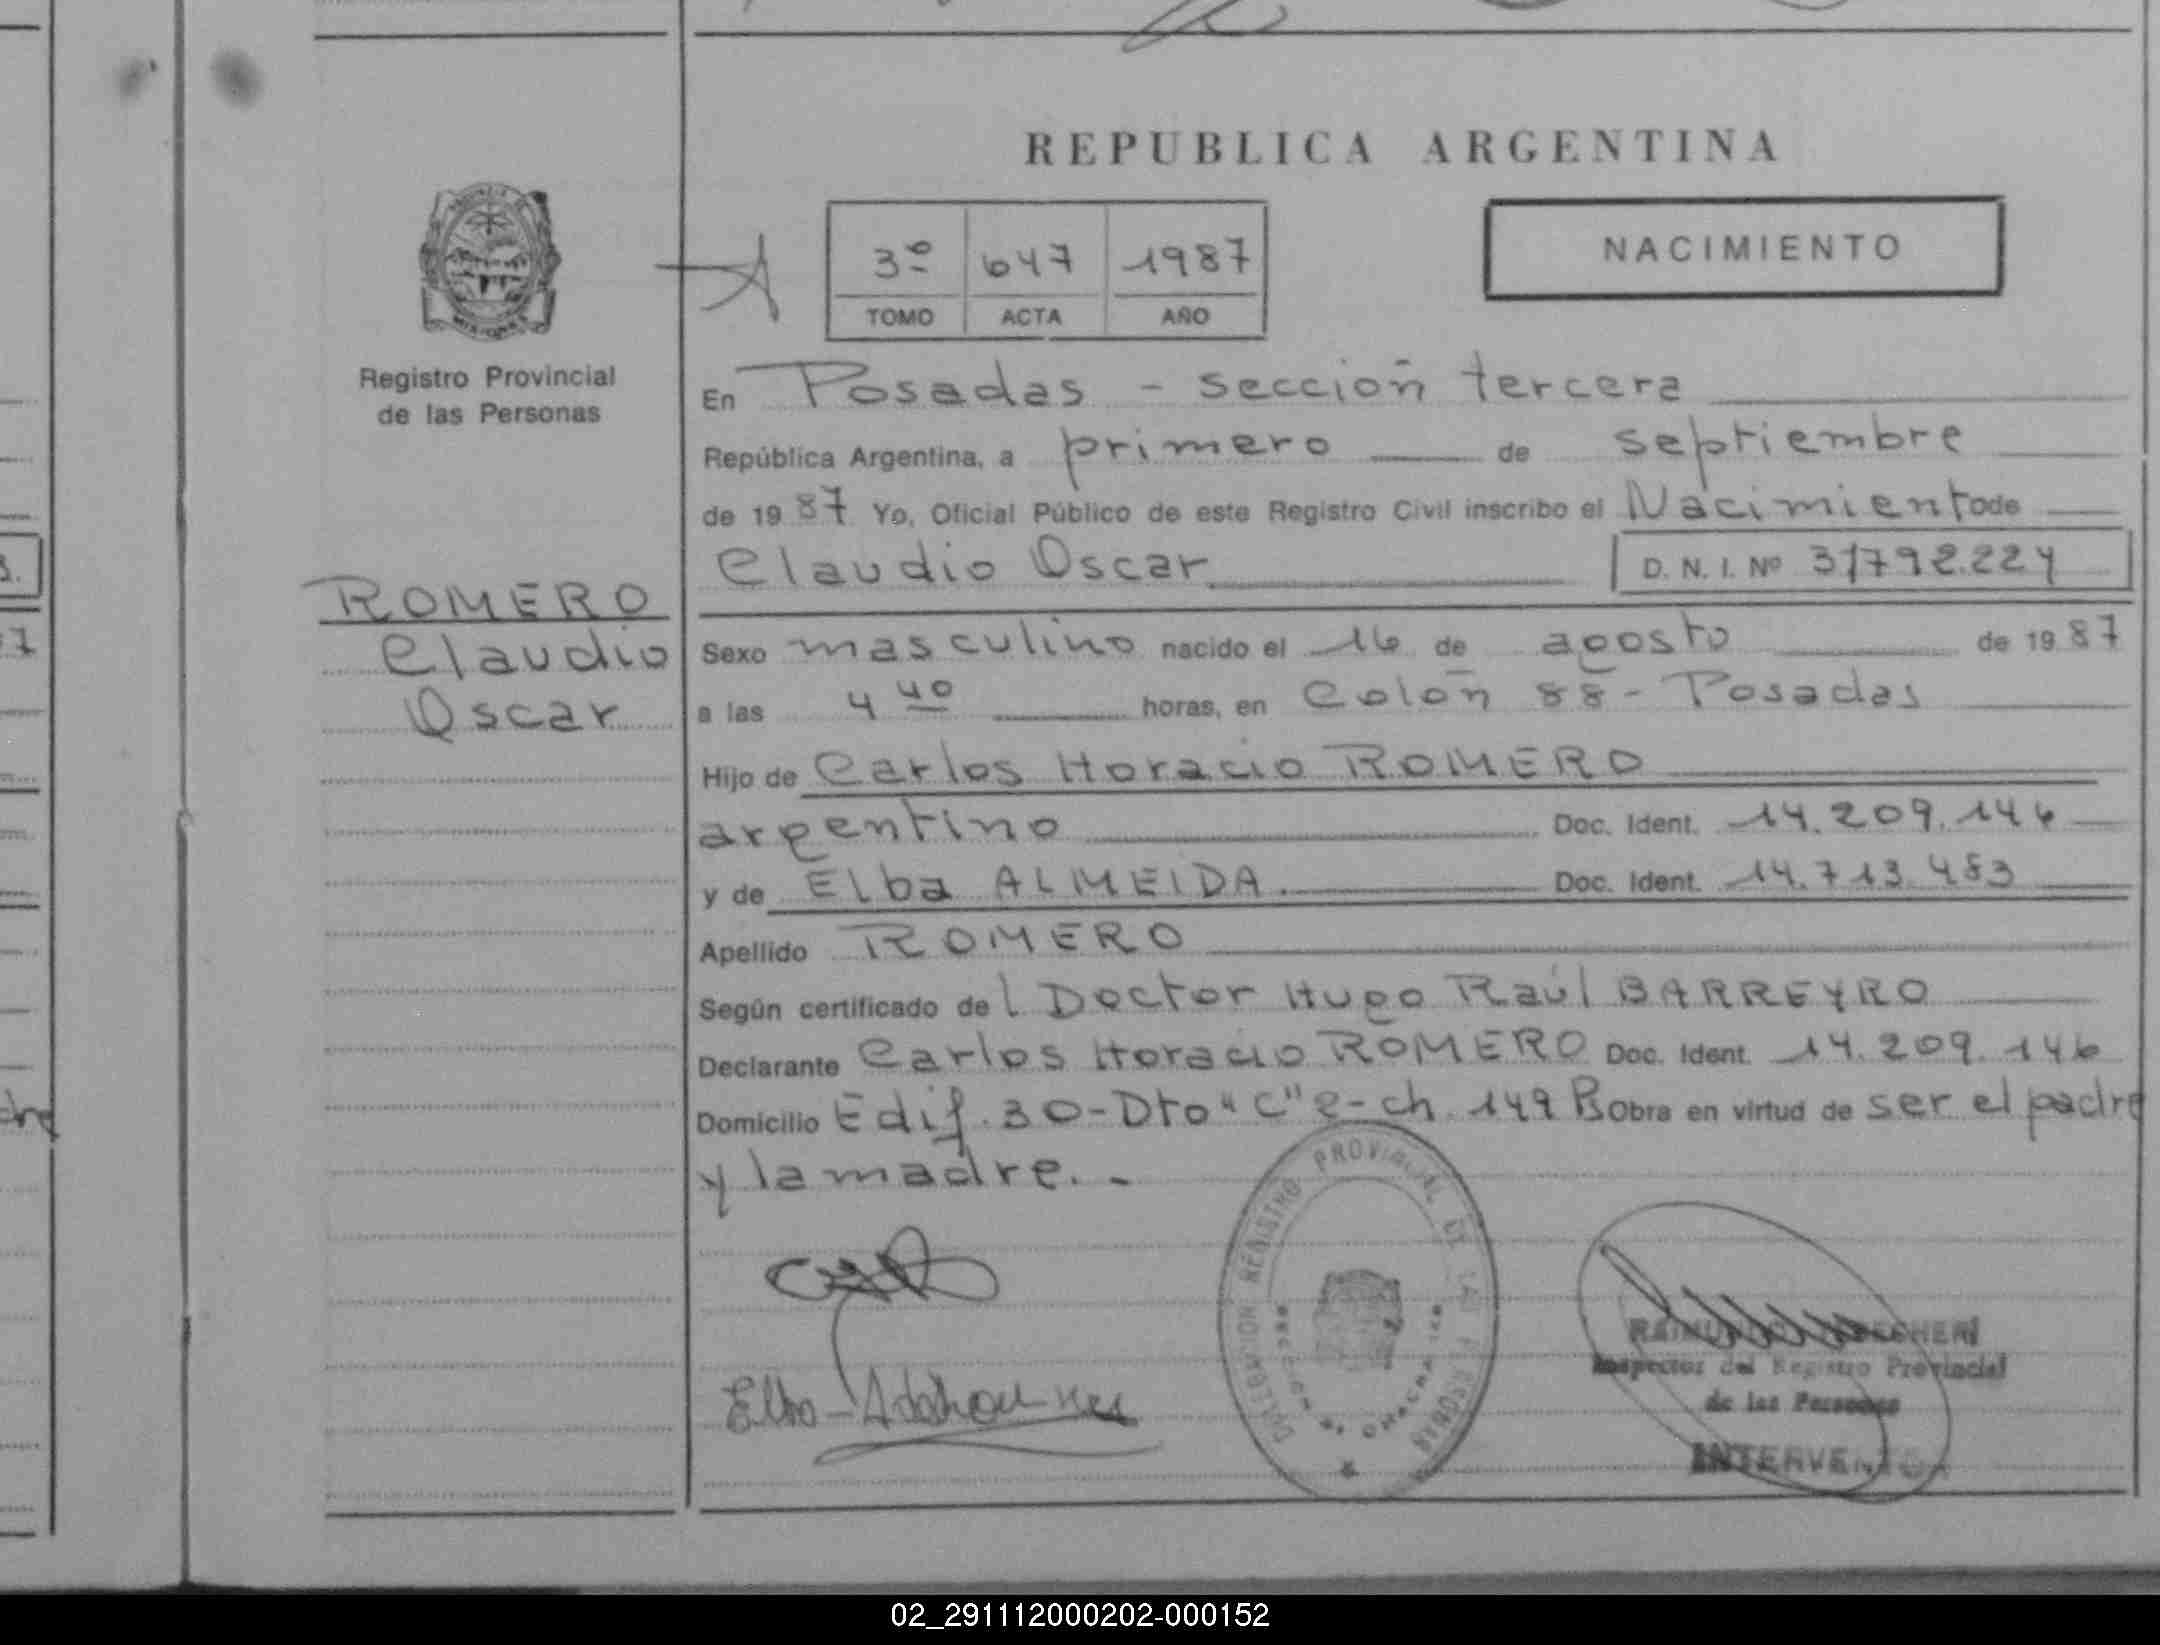 REPUBLICA ARGENTINA
3º 647 1987
TOMO ACTA AÑO
NACIMIENTO
A
Registro Provincial
de las Personas
ROMERO
Claudio
Oscar
En Posadas - sección tercera
República Argentina, a primero de septiembre
de 1987 Yo, Oficial Público de este Registro Civil inscribo el Nacimiento de
Claudio Oscar D. N. I. Nº 31792.224
Sexo masculino nacido el 16 de agosto de 1987
a las 4 40 horas, en Colón 88 - Posadas
Hijo de Carlos Horacio ROMERO
argentino Doc. Ident. 14.209.146
y de Elba ALMEIDA. Doc. Ident. 14.713.483
Apellido ROMERO
Según certificado del Doctor Hugo Raúl BARREYRO
Declarante Carlos Horacio ROMERO Doc. Ident. 14.209.146
Domicilio Edif. 30 - Dto "C" 2 - ch. 149 P. Obra en virtud de ser el padre
y la madre. -
DELEGACION REGISTRO PROVINCIAL DE LAS PERSONAS
RAIMUNDO
Inspector del Registro Provincial
de las Personas
INTERVENTOR
02_291112000202-000152